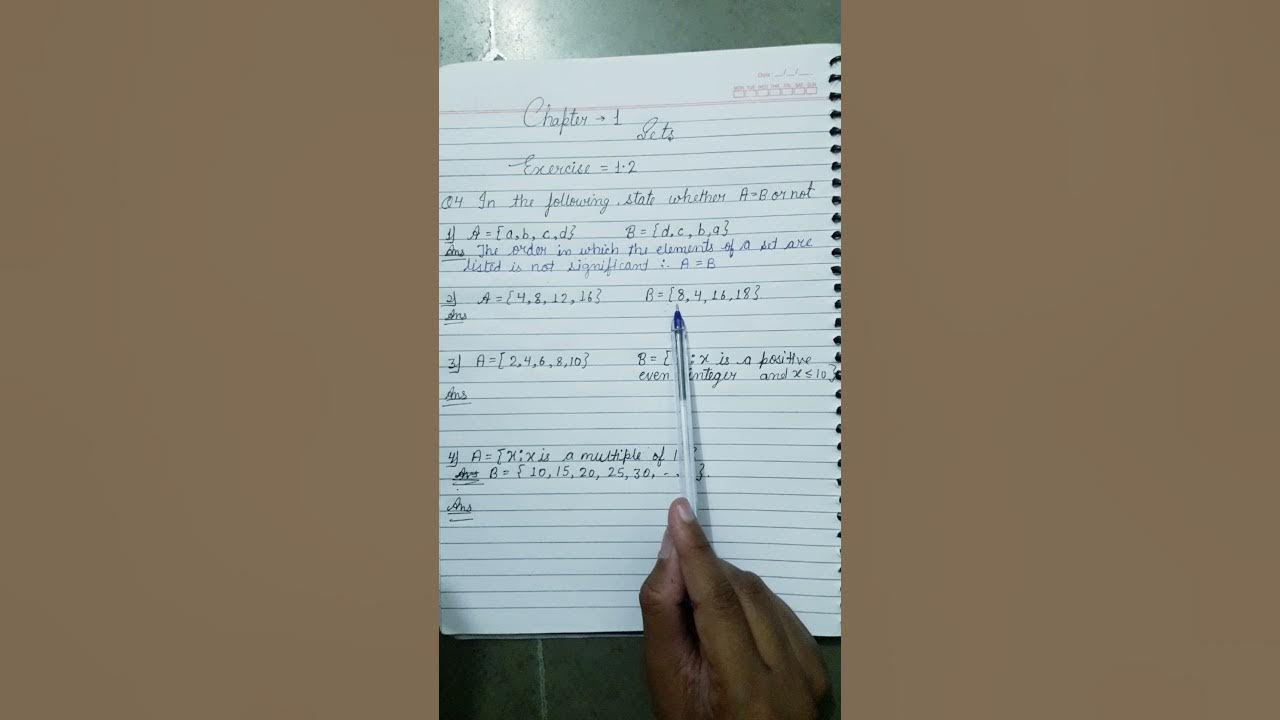 Date __/__/__
MON TUE WED THU FRI SAT SUN
Chapter → 1
Sets
Exercise = 1.2
Q4 In the following, state whether A=B or not
1) A = {a, b, c, d} B = {d, c, b, a}
Ans The order in which the elements of a set are
listed is not significant ∴ A = B
2) A = {4, 8, 12, 16} B = {8, 4, 16, 18}
Ans
3) A = {2, 4, 6, 8, 10} B = { : x is a positive
even integer and x ≤ 10}
Ans
4) A = {x : x is a multiple of 1 }
B = { 10, 15, 20, 25, 30, - - }
Ans